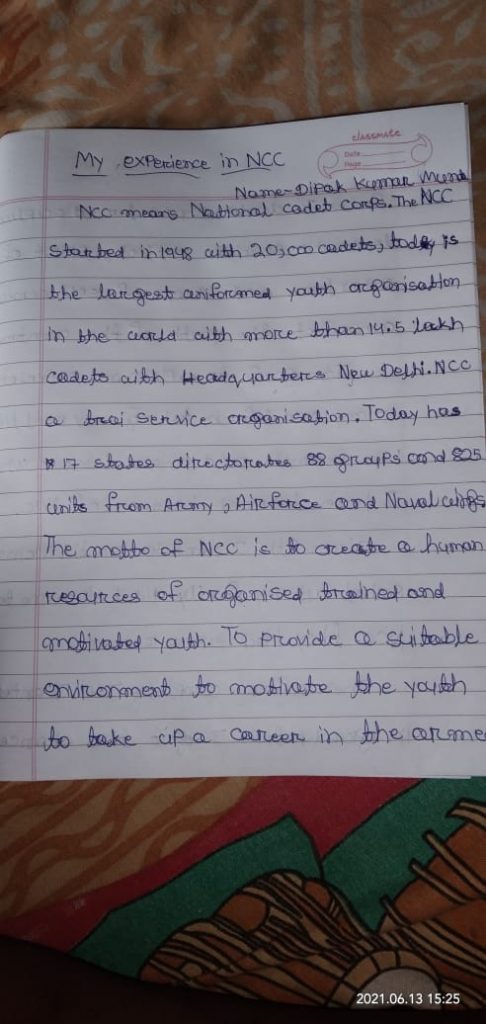 classmate
Date
Page
My experience in NCC
Name-Dipak Kumar Munda
NCC means National cadet Corps. The NCC
started in 1948 with 20,000 cadets, today is
the largest uniformed youth organisation
in the world with more than 14.5 lakh
cadets with Headquarters New Delhi. NCC
a trai service organisation. Today has
17 states directorates 88 groups and 825
units from Army, Airforce and Naval wings
The motto of NCC is to create a human
resources of organised trained and
motivated youth. To provide a suitable
environment to motivate the youth
to take up a career in the arme
2021.06.13 15:25